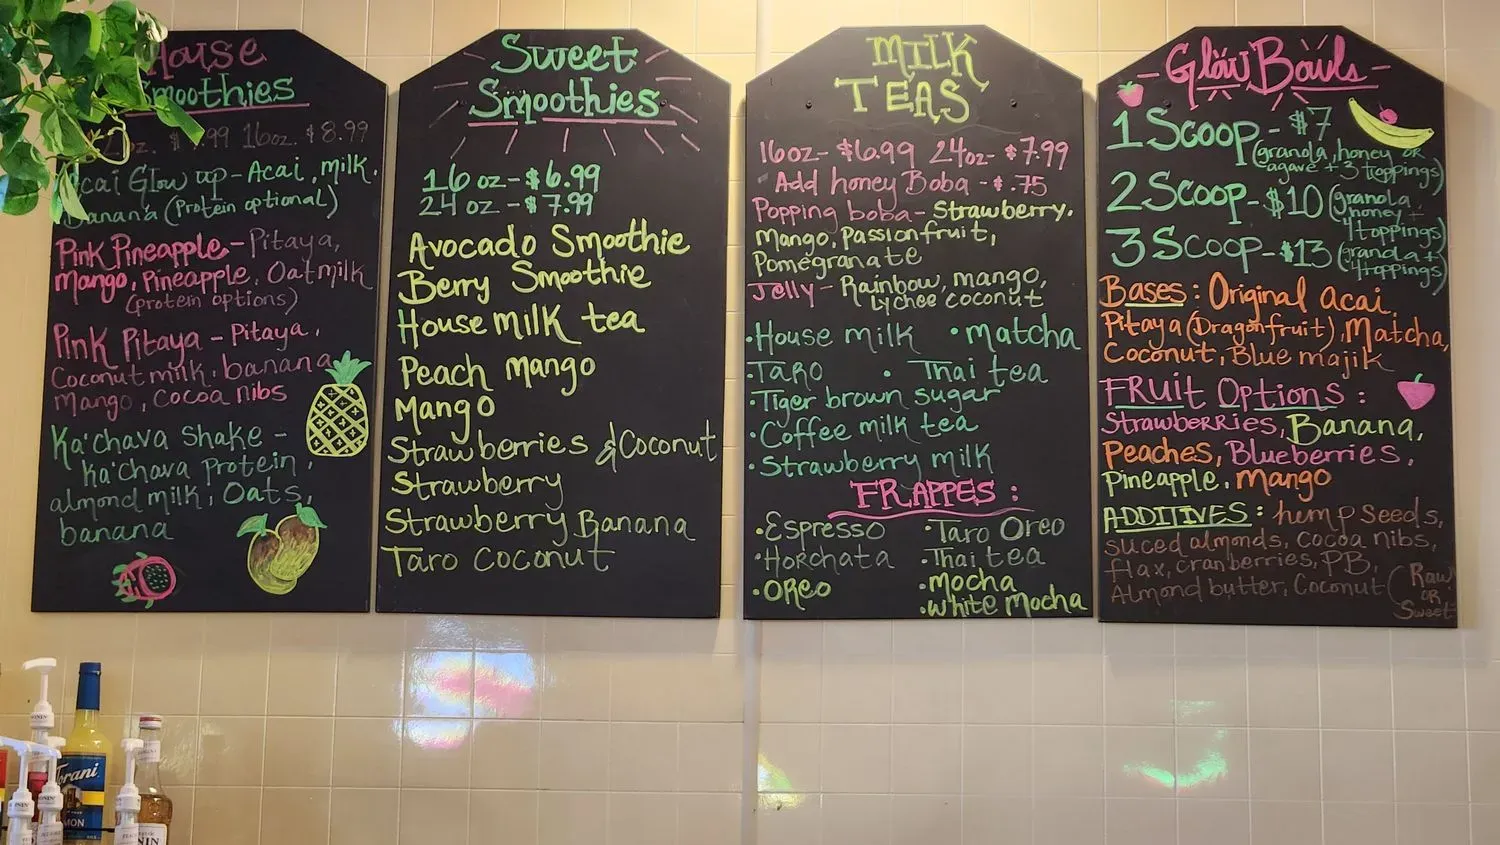 House
Smoothies
oz. .99 16oz. $8.99
Acai Glow up - Acai, milk,
Banana (Protein optional)
Pink Pineapple - Pitaya,
Mango, Pineapple, Oatmilk
(protein options)
Pink Pitaya - Pitaya,
Coconut milk, banana
Mango, cocoa nibs
Ka'chava Shake -
Ka'chava protein,
almond milk, Oats,
banana
Sweet
Smoothies
16 oz - $6.99
24 oz - $7.99
Avocado Smoothie
Berry Smoothie
House milk tea
Peach mango
Mango
Strawberries & Coconut
Strawberry
Strawberry Banana
Taro Coconut
MILK
TEAS
16oz - $6.99 24oz - $7.99
Add honey Boba - $.75
Popping boba - Strawberry,
Mango, Passionfruit,
Pomegranate
Jelly - Rainbow, mango,
Lychee coconut
•House milk •matcha
•Taro •Thai tea
•Tiger brown sugar
•Coffee milk tea
•Strawberry milk
FRAPPES:
•Espresso •Taro Oreo
•Horchata •Thai tea
•Oreo •Mocha
•White Mocha
- Glow Bowls -
1 Scoop - $7
(granola, honey or
agave + 3 toppings)
2 Scoop - $10 (granola,
honey +
4 toppings)
3 Scoop - $13 (granola +
4 toppings)
Bases: Original acai,
Pitaya (Dragonfruit), Matcha,
Coconut, Blue majik
FRUIT Options:
Strawberries, Banana,
Peaches, Blueberries,
Pineapple, Mango
ADDITIVES: hemp seeds,
sliced almonds, Cocoa nibs,
flax, cranberries, PB,
Almond butter, Coconut (Raw
OR
Sweet
Torani